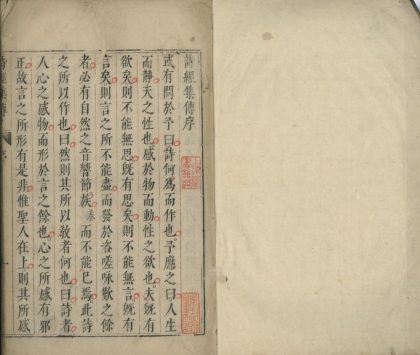 詩經集傳序
或有問於予曰詩何爲而作也予應之曰人生
而靜天之性也感於物而動性之欲也夫既有
欲矣則不能無思既有思矣則不能無言既有
言矣則言之所不能盡而發於咨嗟咏歎之餘
者必有自然之音響節族奏而不能已焉此詩
之所以作也曰然則其所以教者何也曰詩者
人心之感物而形於言之餘也心之所感有邪
正故言之所形有是非惟聖人在上則其所感
詩經集傳
序